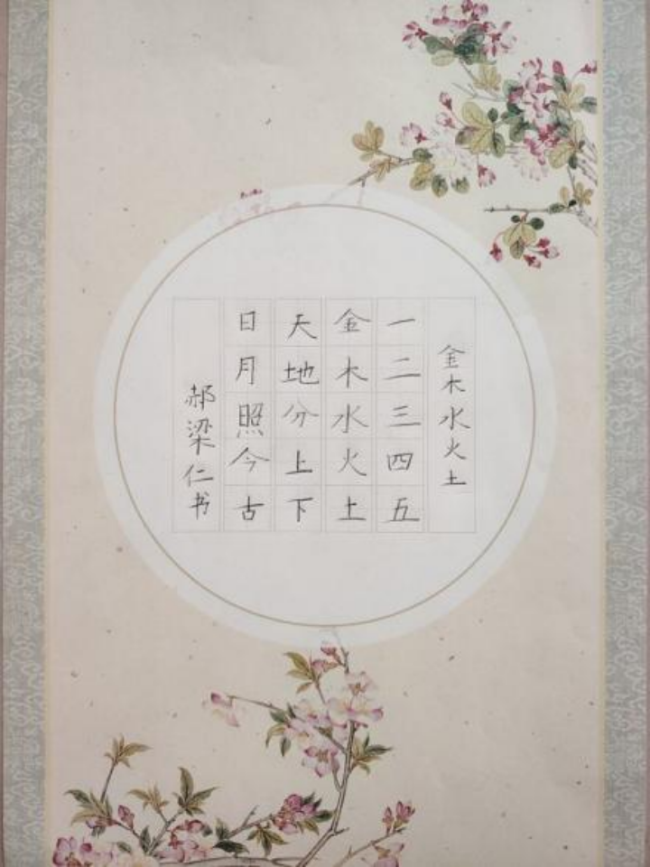 金木水火土
一二三四五
金木水火土
天地分上下
日月照今古
郝梁仁书